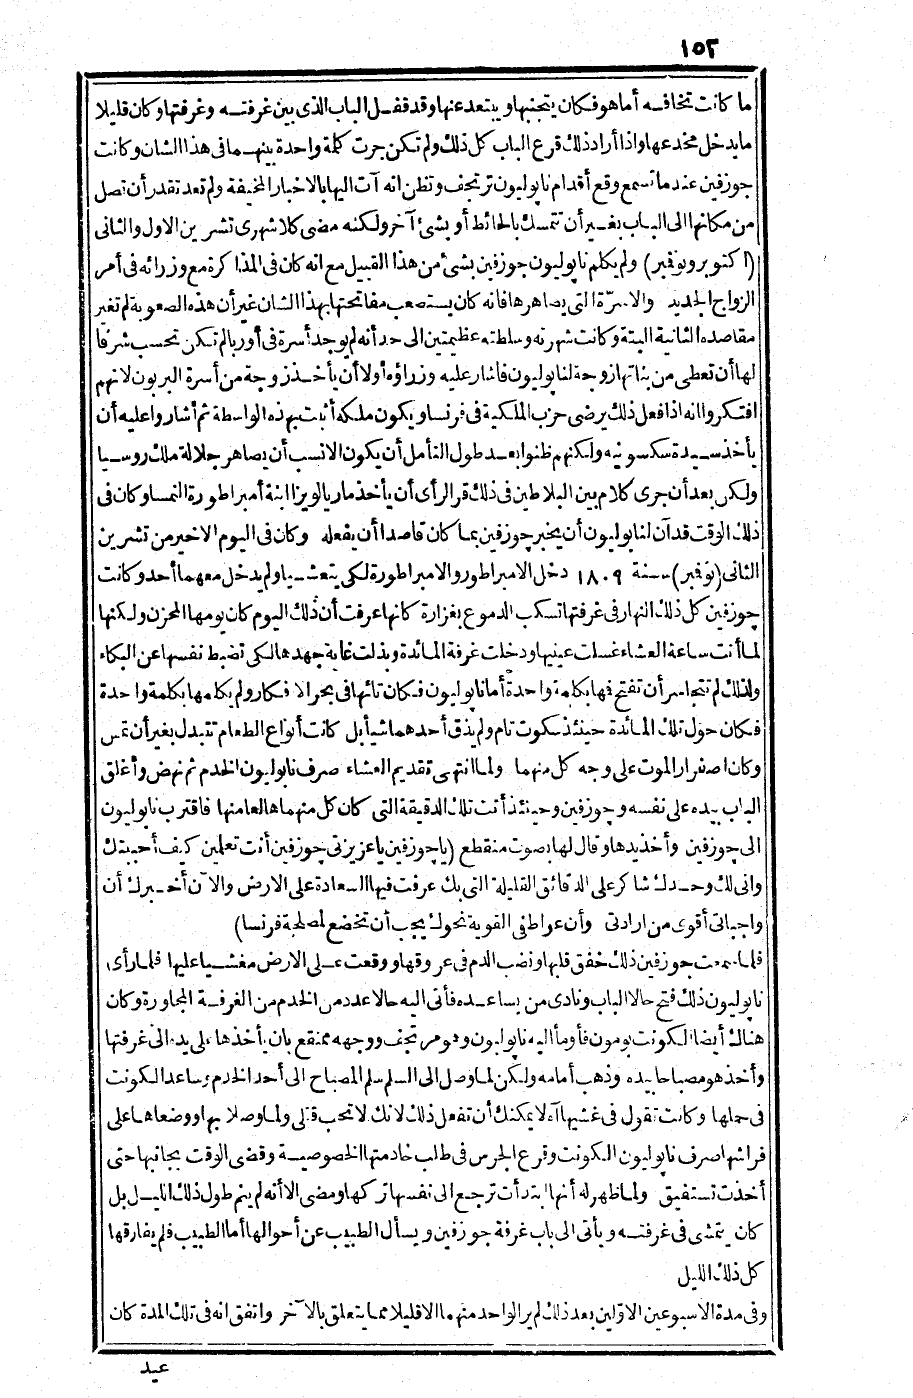 ١٥٢
ما كانت تخافه أما هو فكان يتجنبها ويبتعد عنها وقد قفل الباب الذى بين غرفته وغرفتها وكان قليلا
ما يدخل مخدعها واذا أراد ذلك قرع الباب كل ذلك ولم تكن جرت كلمة واحدة بينهما فى هذا الشان وكانت
جوزفين عندما تسمع وقع أقدام نابوليون ترتجف وتظن انه آت اليها بالاخبار المخيفة ولم تعد تقدر أن تصل
من مكانها الى الباب بغير أن تتمسك بالحائط أو بشئ آخر ولكنه مضى كلا شهرى تشرين الاول والثانى
(اكتوبر ونوفمبر) ولم يكلم نابوليون جوزفين بشئ من هذا القبيل مع انه كان فى المذاكرة مع وزرائه فى أمر
الزواج الجديد والاسرة التى يصاهرها فانه كان يستصعب مفاتحتها بهذا الشان غير أن هذه الصعوبة لم تغير
مقاصده الثانية البتة وكانت شهرته وسلطته عظيمتين الى حد أنه لم يوجد أسرة فى أوربا لم تكن تحسب شرفا
لها أن تعطى من بناتها زوجة لنابوليون فاشار عليه وزراؤه أولا أن يأخذ زوجة من أسرة البربون لانهم
افتكروا انه اذا فعل ذلك يرضى حزب الملكية فى فرنسا ويكون ملكه أثبت بهذه الواسطة ثم أشاروا عليه أن
يأخذ سيدة سكسونيه ولكنهم ظنوا بعد طول التأمل أن يكون الانسب أن يصاهر جلالة ملك روسيا
ولكن بعد أن جرى كلام بين البلاطين فى ذلك قر الرأى أن يأخذ ماريا لويزا ابنة أمبراطورة النمسا وكان فى
ذلك الوقت قد آن لنابوليون أن يخبر جوزفين بما كان قاصدا أن يفعله وكان فى اليوم الاخير من تشرين
الثانى (نوفمبر) سنة ١٨٠٩ دخل الامبراطور والامبراطورة لكى يتعشيا ولم يدخل معهما أحد وكانت
جوزفين كل ذلك النهار فى غرفتها تسكب الدموع بغزارة كانها عرفت أن ذلك اليوم كان يومها المحزن ولكنها
لما أتت ساعة العشاء غسلت عينيها ودخلت غرفة المائدة وبذلت غاية جهدها لكى تضبط نفسها عن البكاء
ولذلك لم تتجاسر أن تفتح فمها بكلمة واحدة أما نابوليون فكان تائها فى بحر الافكار ولم يكلمها بكلمة واحدة
فكان حول تلك المائدة حينئذ سكوت تام ولم يذق أحدهما شيأ بل كانت أنواع الطعام تتبدل بغير أن تمس
وكان اصفرار الموت على وجه كل منهما ولما انتهى تقديم العشاء صرف نابوليون الخدم ثم نهض وأغلق
الباب بيده على نفسه وجوزفين وحينئذ أتت تلك الدقيقة التى كان كل منهما هالعا منها فاقترب نابوليون
الى جوزفين وأخذ يدها وقال لها بصوت منقطع (يا جوزفين يا عزيزتى جوزفين أنت تعلمين كيف أحببتك
وانى لك وحدك شاكر على الدقائق القليلة التى بك عرفت فيها السعادة على الارض والآن أخبرك أن
واجباتى أقوى من ارادتى وأن عواطفى القوية نحوك يجب أن تخضع لمصلحة فرنسا)
فلما سمعت جوزفين ذلك خفق قلبها ونضب الدم فى عروقها ووقعت على الارض مغشيا عليها فلما رأى
نابوليون ذلك فتح حالا الباب ونادى من يساعيده فأتى اليه حالا عدد من الخدم من الغرفة المجاورة وكان
هناك أيضا الكونت بومون فأومأ اليه نابوليون وهو مرتجف ووجهه ممتقع بان يأخذها على يده الى غرفتها
وأخذ هو مصباحا بيده وذهب أمامه ولكن لما وصل الى السلم سلم المصباح الى أحد الخدم وساعد الكونت
فى حملها وكانت تقول فى غشيها آه لا يمكنك أن تفعل ذلك لانك لا تحب قتلى ولما وصلا بها ووضعاها على
فراشها صرف نابوليون الكونت وقرع الجرس فى طلب خادمتها الخصوصية وقضى الوقت بجانبها حتى
أخذت تستفيق ولما ظهر له أنها ابتدأت ترجع الى نفسها تركها ومضى الا أنه لم ينم طول ذلك الليل بل
كان يتمشى فى غرفته ويأتى الى باب غرفة جوزفين ويسأل الطبيب عن أحوالها أما الطبيب فلم يفارقها
كل ذلك الليل
وفى مدة الاسبوعين الاولين بعد ذلك لم ير الواحد منهما الا قليلا مما يتعلق بالآخر واتفق انه فى تلك المدة كان
عيد